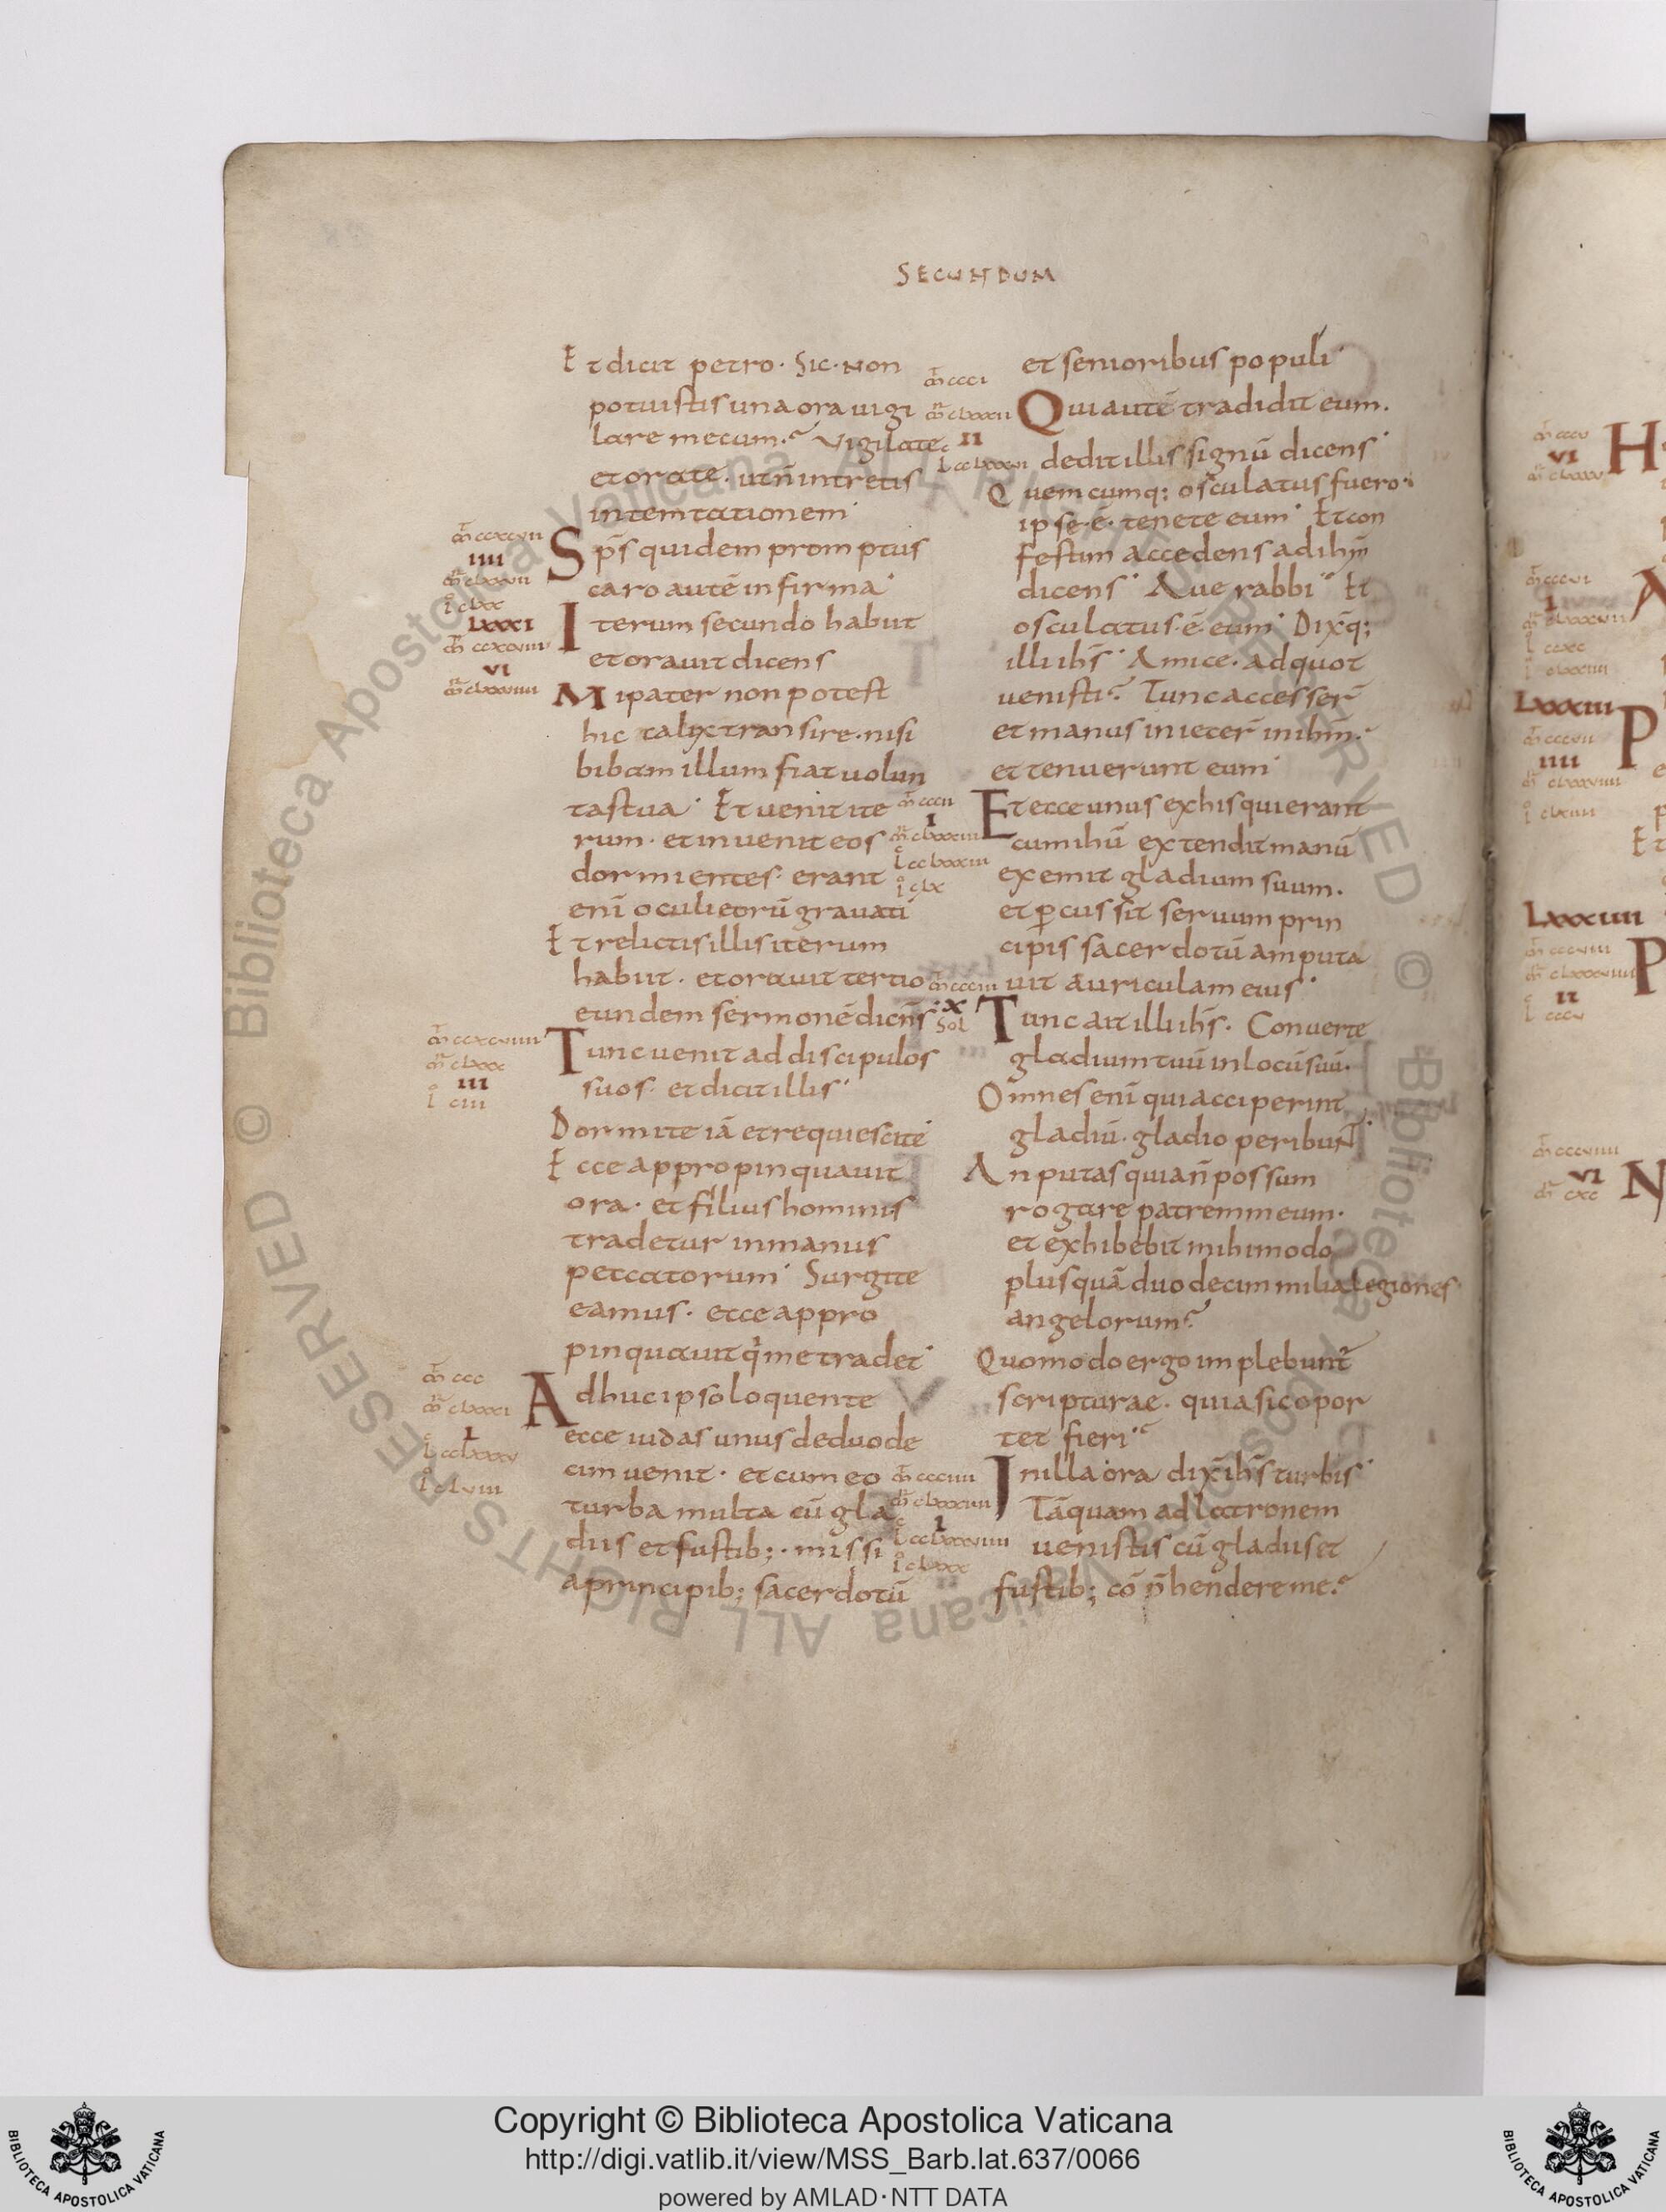 SECUNDUM
Et dicit petro· Sic· non
potuistis una ora uigi
lare mecum· Vigilate
et orate· ut n̄ intretis
in temtationem·
Sp̄s quidem promptus
caro autē infirma·
Iterum secundo habiit
et orauit dicens
Mi pater non potest
hic calyx transire· nisi
bibam illum fiat uolun
tas tua· Et uenit ite
rum· et inuenit eos
dormientes· erant
enī oculi eorū grauati
Et relictis illis iterum
habiit· et orauit tertio
eundem sermonē dicens
Tunc uenit ad discipulos
suos· et dicit illis·
Dormite iā et requiescite
Ecce appropinquauit
ora· et filius hominis
tradetur in manus
peccatorum· Surgite
eamus· ecce appro
pinquauit q̇ me tradet·
Adhuc ipso loquente
ecce iudas unus de duode
cim uenit· et cum eo
turba multa cū gla
diis et fustib;· missi
a principib; sacerdotū
et senioribus populi·
Qui autē tradidit eum·
dedit illis signū dicens·
Quemcumq; osculatus fuero·
ipse· ē· tenete eum· Et con
festim accedens ad ihm̄
dicens· Aue rabbi· Et
osculatus· ē· eum· Dix̄q;
illi ihs̄· Amice· ad quot
uenisti? Tunc accesser̄
et manus iniecer̄ in ihm̄·
et tenuerunt eum·
Et ecce unus ex his qui erant
cum ihū extendit manū
exemit gladium suum·
et ꝑcussit seruum prin
cipis sacerdotū amputa
uit auriculam eius·
Tunc ait illi ihs̄· Conuerte
gladium tuū in locū suū·
Omnes enī qui acciperint
gladiū· gladio peribunt·
An putas quia n̄ possum
rogare patrem meum·
et exhibebit mihi modo
plus quā duodecim milia legiones
angelorum?
Quomodo ergo implebunt̄
scripturae· quia sic opor
tet fieri·
In illa ora dix̄ ihs̄ turbis·
Tāquam ad latronem
uenistis cū gladiis et
fustib; cō p̄hendere me·
LXXXI
LXXXIII
LXXXIIII
Copyright © Biblioteca Apostolica Vaticana
http://digi.vatlib.it/view/MSS_Barb.lat.637/0066
powered by AMLAD·NTT DATA
BIBLIOTECA APOSTOLICA VATICANA
BIBLIOTECA APOSTOLICA VATICANA